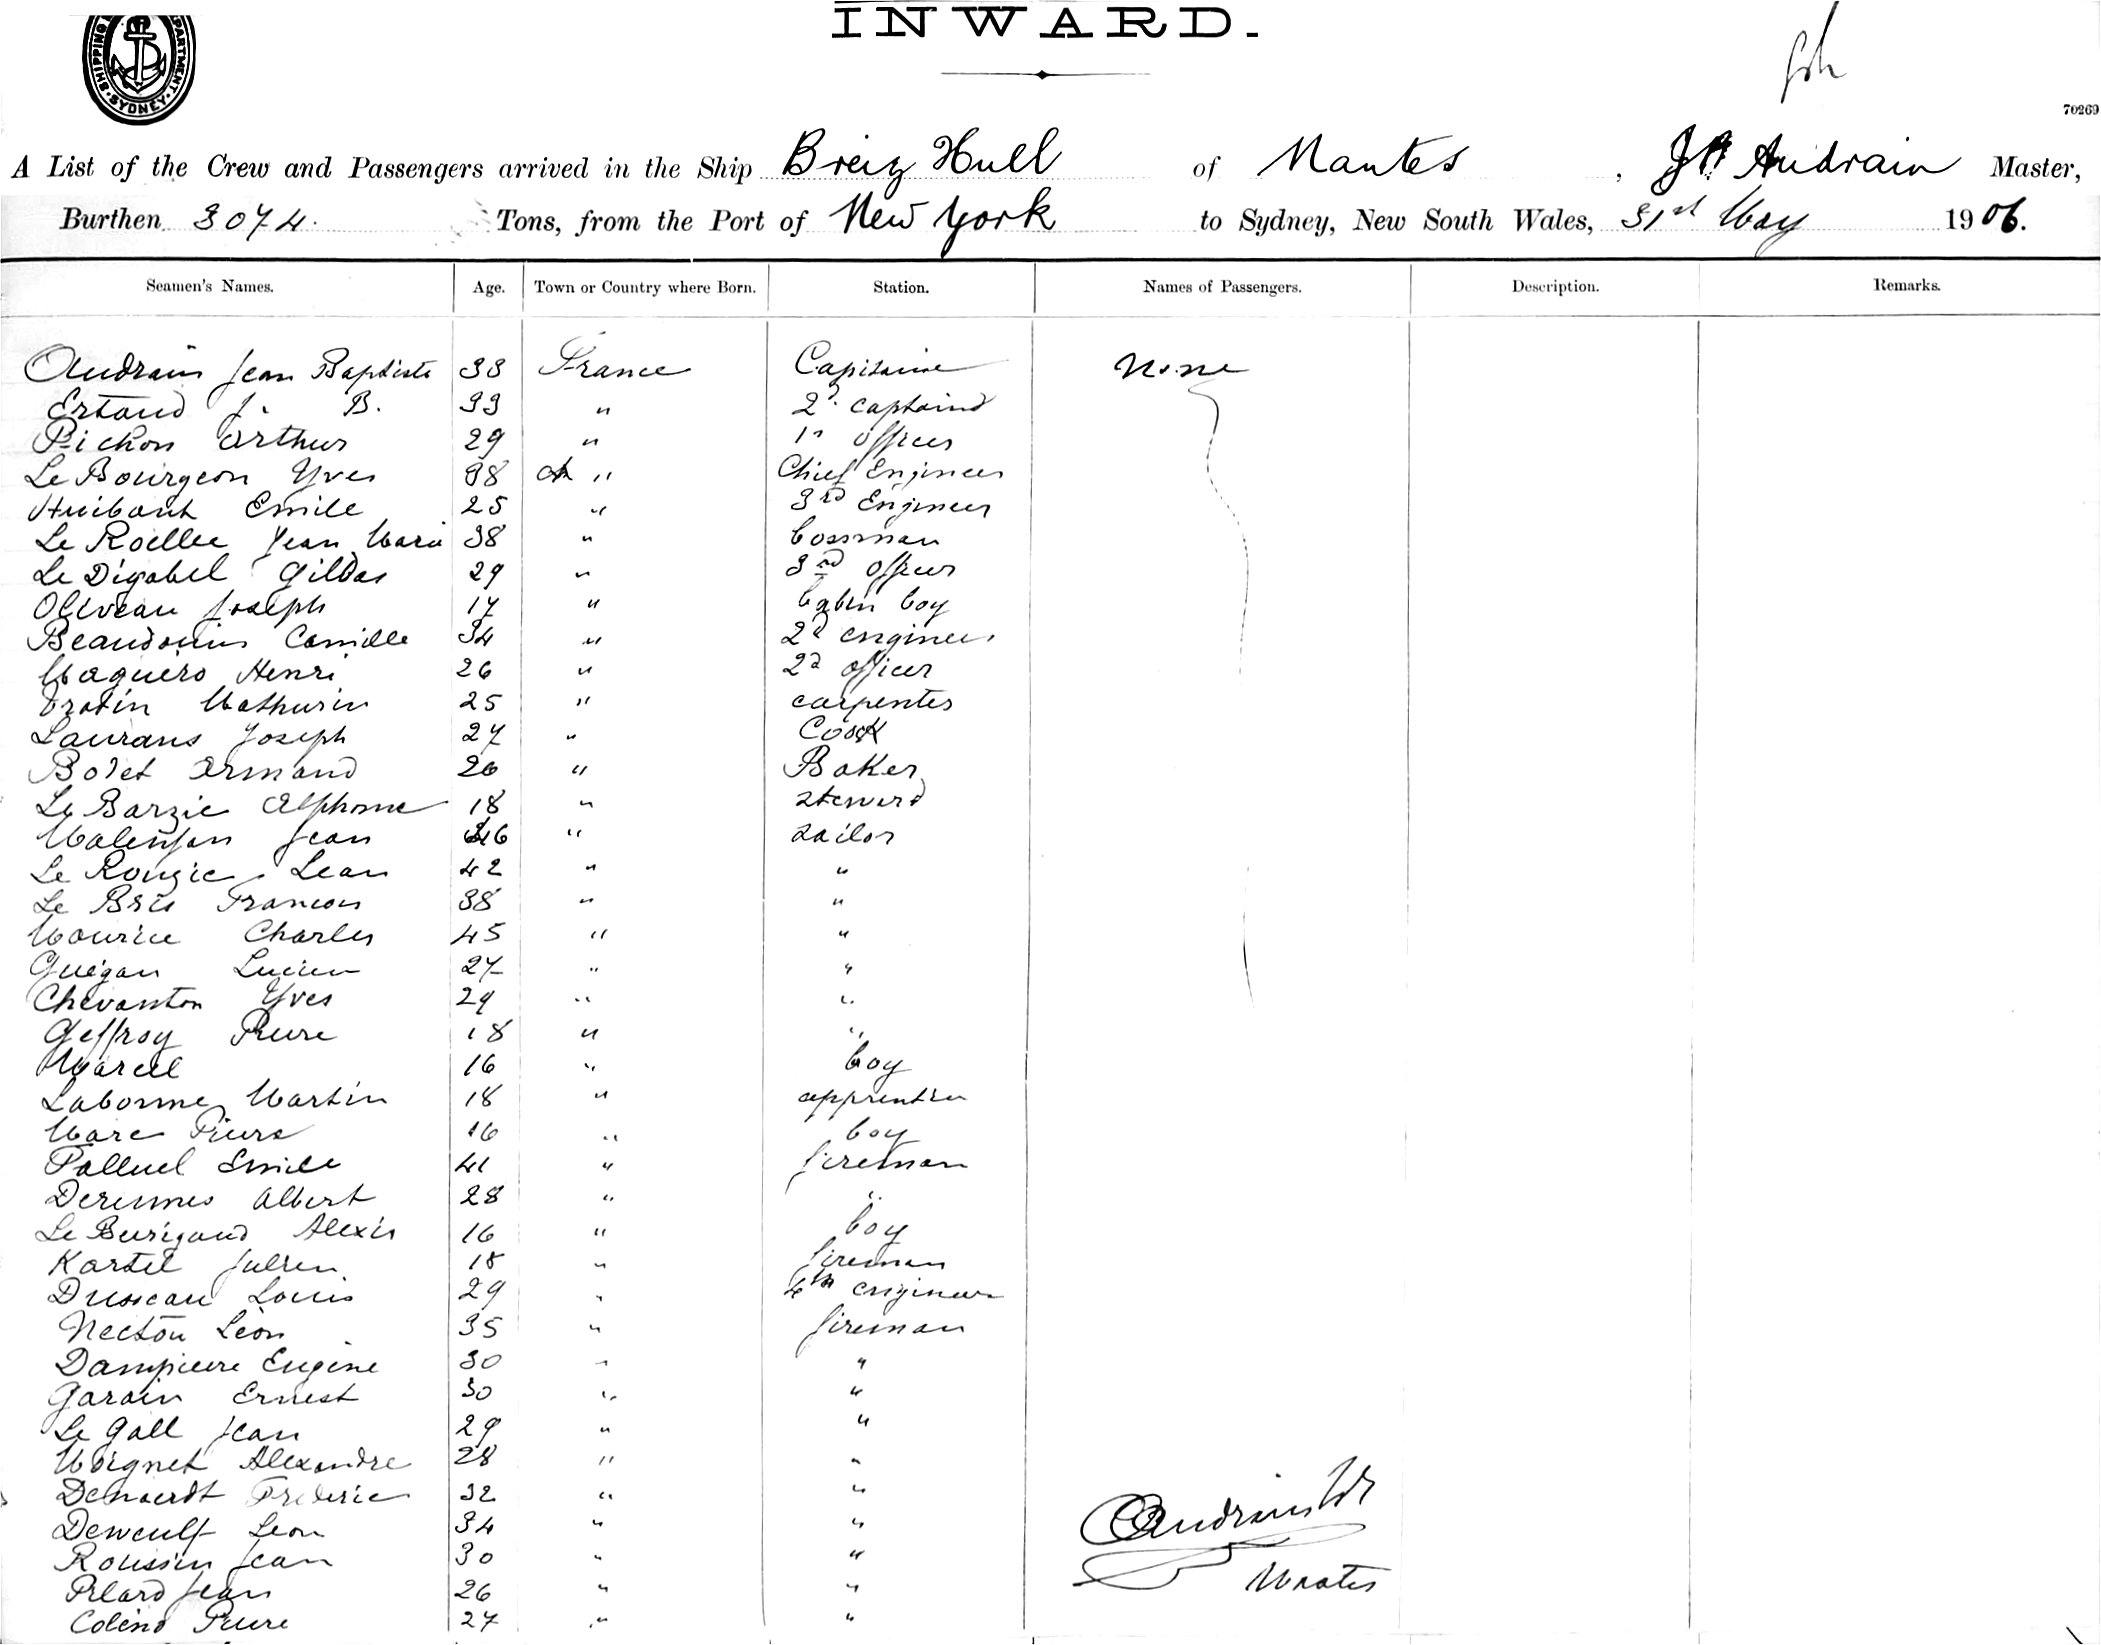 INWARD.
SHIPPING DEPARTMENT SYDNEY
70269
A List of the Crew and Passengers arrived in the Ship Breiz Hull of Nantes, J B Audrain Master,
Burthen 3074. Tons, from the Port of New York to Sydney, New South Wales, 31st May 1906.
Seamen's Names. Age. Town or Country where Born. Station. Names of Passengers. Description. Remarks.
Audrain Jean Baptiste 38 France Capitaine None
Ertaud J. B. 33 " 2d. captaind
Pichon Arthur 29 " 1r officer
Le Bourgeon Yves 38 " Chief Engineer
Huibant Emile 25 " 3rd Engineer
Le Roellec Jean Marie 38 " bossman
Le Digabel Gildas 29 " 3rd officer
Oliveau Joseph 17 " cabin boy
Beaudouin Camille 34 " 2d engineer
Maguéro Henri 26 " 2d officer
Oratin Mathurin 25 " carpenter
Laurans Joseph 27 " Cook
Bodet Armand 26 " Baker
Le Barzic Alphonse 18 " steward
Malenfan Jean 46 " sailor
Le Rouzic Lean 42 " "
Le Bris Francois 38 " "
Mourice Charles 45 " "
Guégan Lucien 27 " "
Chevanton Yves 29 " "
Geffroy Pierre 18 " "
Marcel 16 " boy
Laborme Martin 18 " apprentice
Marc Pierre 16 " boy
Palluel Emile 41 " fireman
Derennes Albert 28 " "
Le Burigaud Alexis 16 " boy
Kartel Julien 18 " fireman
Dusseau Louis 29 " 4th engineer
Necton Léon 35 " fireman
Dampierre Eugène 30 " "
Garain Ernest 30 " "
Le Gall Jean 29 " "
Moignet Alexandre 28 " "
Dehaerdt Frederic 32 " "
Deweulf Leon 34 " "
Roussin Jean 30 " "
Pilard Jean 26 " "
Colino Pierre 27 " "
Audrain
Master